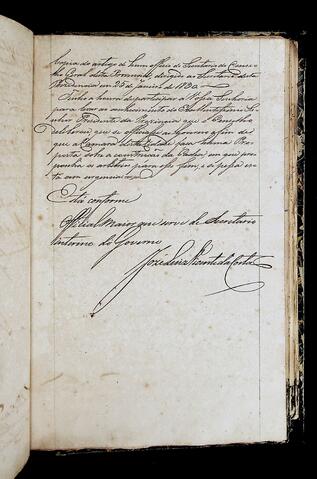 Copia do artigo de hum officio do Secretario do Conse-
lho Geral desta Provincia, dirigido ao Secretario desta
Presidencia em 25 de Janeiro de 1830.
Tenho a honra de participar a Vossa Senhoria
para levar ao conhecimento do Excellentissimo Se-
nhor Presidente da Provincia que o Conselho
deliberou que se officiasse ao Governo afim de
que a Camara desta Cidade faça huma Pro-
posta sobre a construcção da Cadêa em que
ponha os para esse fim, e
com urgencia
Está conforme
Official Maior que serve de Secretario
Interino do Governo
José da Costa